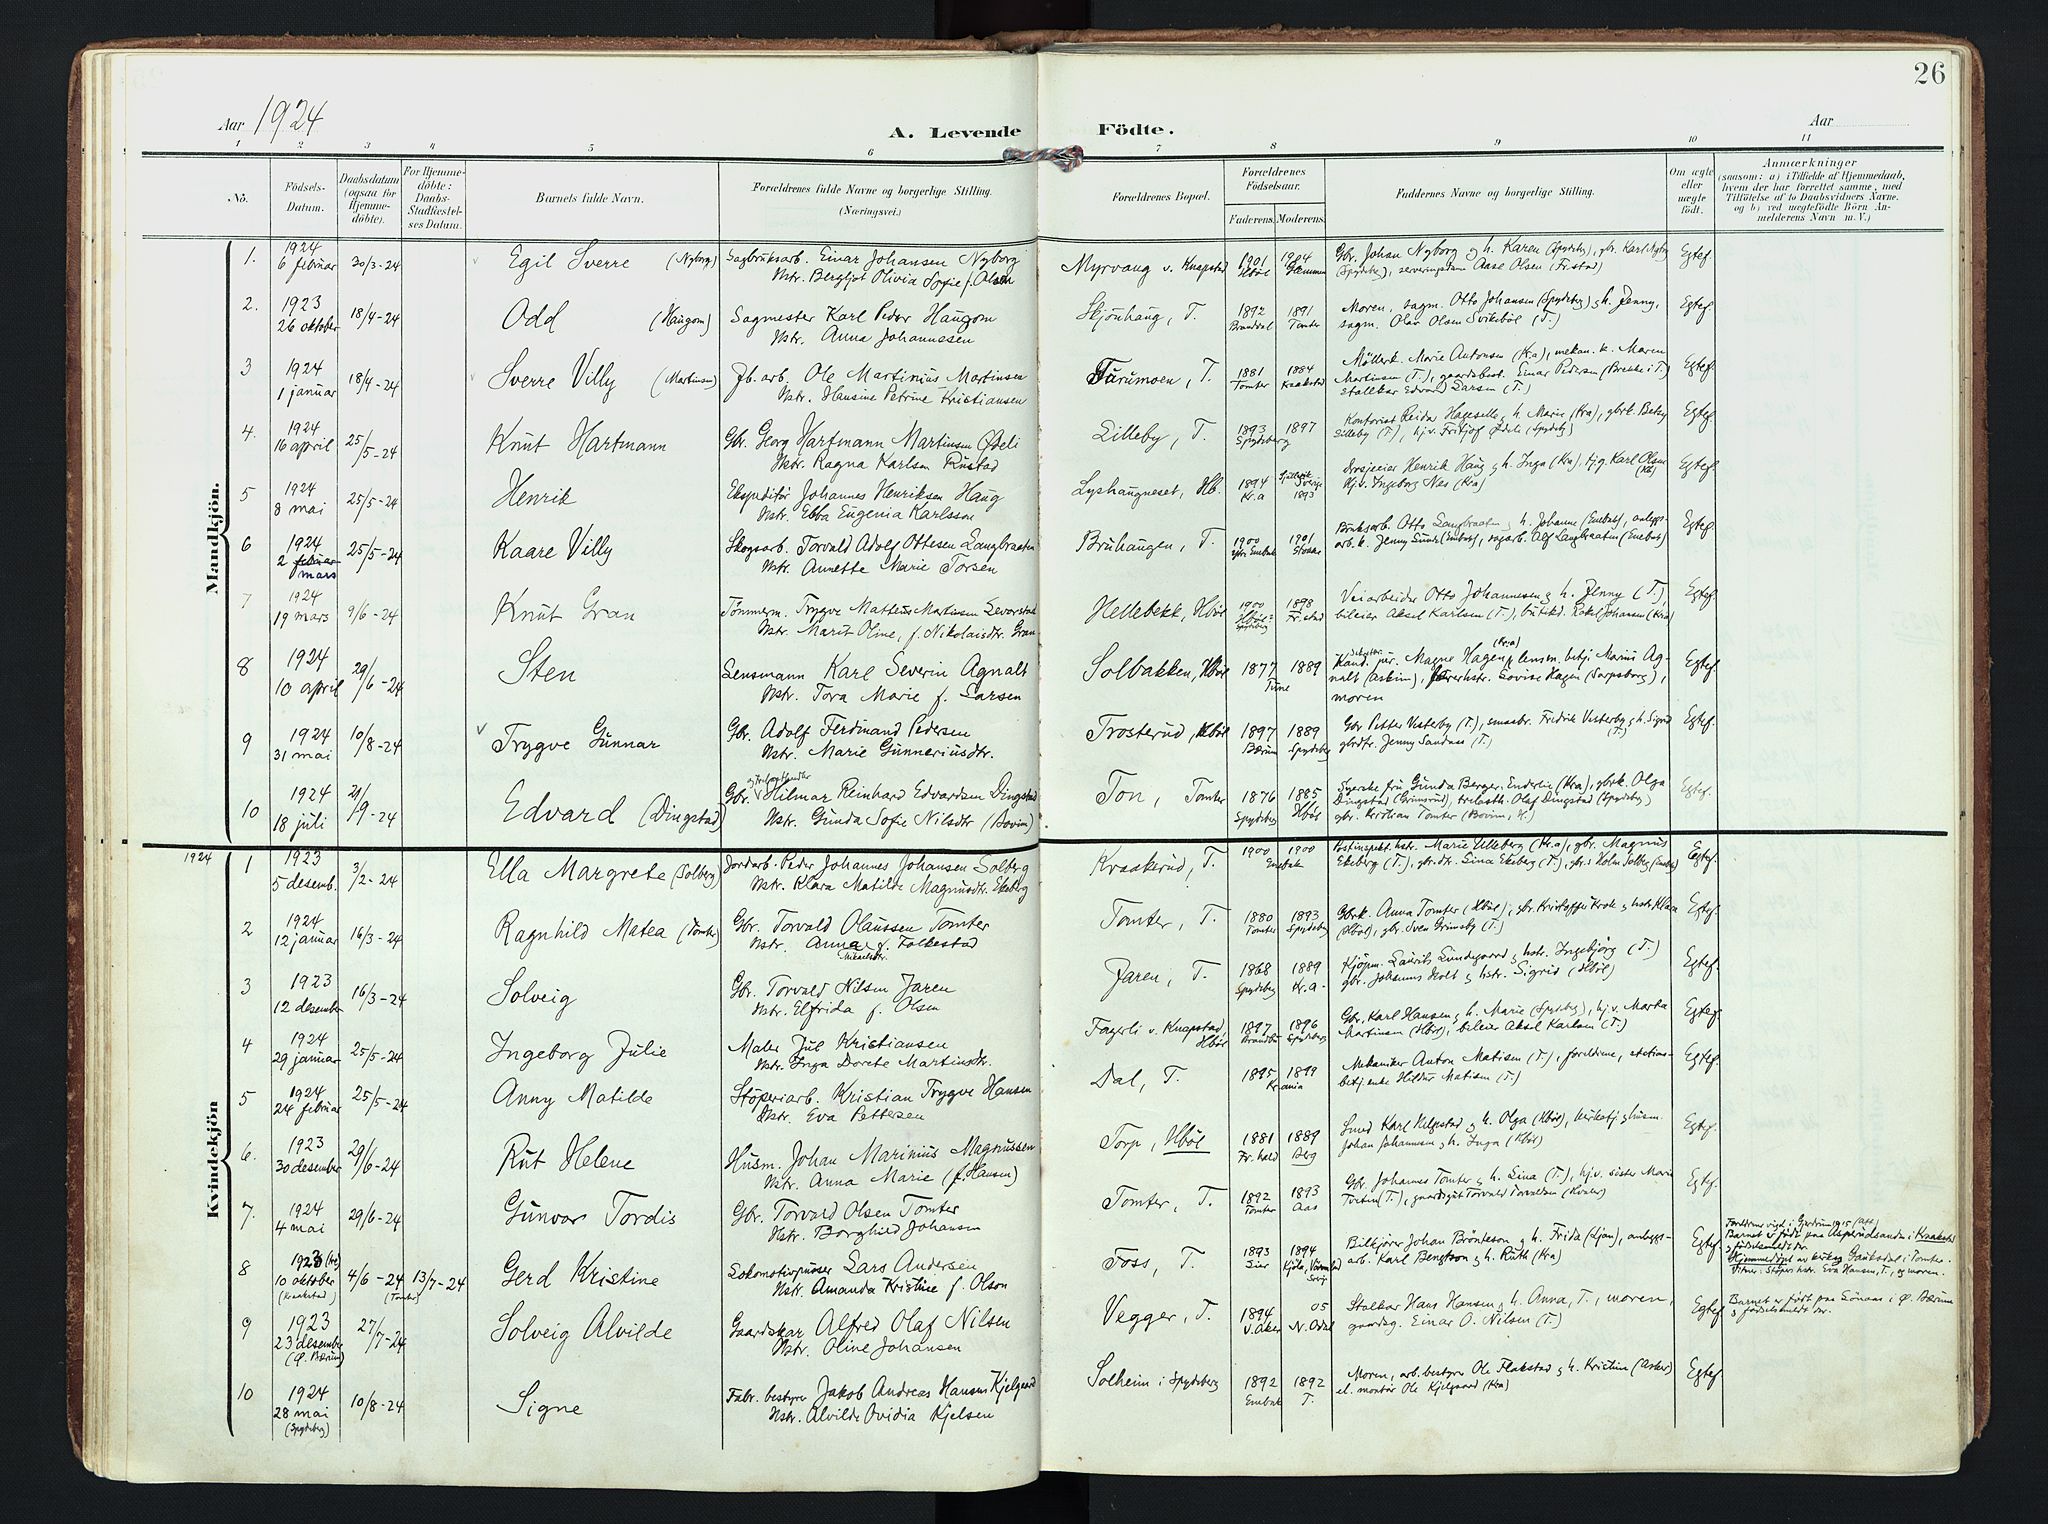 26
Aar 1924
A. Levende Födte.
Aar
1 2 3 4 5 6 7 8 9 10 11
Nò.
Födsels-Datum.
Daabsdatum (ogsaa for Hjemmedöbte).
For Hjemmedöbte: Daabs-Stadfæstelses Datum.
Barnets fulde Navn.
Forældrenes fulde Navne og borgerlige Stilling. (Næringsvei.)
Forældrenes Bopæl.
Forældrenes Födselsaar.
Faderens. Moderens.
Faddernes Navne og borgerlige Stilling.
Om ægte eller uægte födt.
Anmærkninger
(saasom: a) i Tilfælde af Hjemmedaab,
hvem der har forrettet samme, med
Tilföielse af to Daabsvidners Navne.
og b) ved uægtefödte Börn Anmelderens Navn m. V.)
Mandkjön.
1. 1924 6 februar 30/3-24 Egil Sverre (Nyborg) Sagbruksarb. Einar Johansen Nyborg
Hstr. Bergljot Olivia Sofie f. Olsen
Myrvang v. Knapstad 1901 Hböl 1904
Gbr. Johan Nyborg og h. Karen (Spydebg), gbr. Karl Nyborg
(Spydebg), serveringsdame Aase Olsen (Fr.stad) Egtef.
2. 1923 26 oktober 18/4-24 Odd (Haugom) Sagmester Karl Peder Haugom
Hstr. Anna Johannessen
Skjönhaug, T. 1892 1891 Tomter
Moren, sagm. Otto Johansen (Spydebg) og h. Jenny,
sagm. Olav Olsen Svikeböl (T.) Egtef.
3 1924 1 januar 18/4-24 Sverre Villy (Martinsen) Fb. arb. Ole Martinius Martinsen
Hstr. Hansine Petrine Kristiansen
Furumoen, T. 1881 Tomter 1884 Kraakstad
Möllerk. Marie Antonsen (Kr.a), mekan. k. Maren
Martinsen (T.), gaardsbest. Einar Pedersen (Brekke i T.)
stallkar Edvard Larsen (T.) Egtef.
4. 1924 16 april 25/5-24 Knut Hartmann Gbr. Georg Hartmann Martinsen Ödeli
Hstr. Ragna Karlsen Rustad
Lilleby, T. 1893 1897 Spydeberg
Kontorist Reidar Hageselle og h. Marie (Kra), gbrk. Betsy
Lilleby (T.), hj.v. Fritjof Ödeli (Spydebg) Egtef.
5 1924 8 mai 25/5-24 Henrik Ekspeditör Johannes Henriksen Haug
Hstr. Ebba Eugenia Karlsson
Lyshaugneset, Hb. 1894 Kr.a Sverige 1893
Drosjeeier Henrik Haug og h. Inga (Kra), tj.g. Karl Olsen
Hj.v. Ingeborg Nes (Kra) Egtef.
6 1924 2 februar mars 25/5-24 Kaare Villy Skogsarb. Torvald Adolf Ottesen Langbraaten
Hstr. Annette Marie Torsen
Bruhaugen, T. 1900 Enebak 1901
Bruksarb. Otto Langbraaten og h. Johanne (Enebak), anleggsarb. k. Jenny Sund (Enebak), sagarb. Alf Langbraaten (Enebak) Egtef.
7 1924 19 mars 9/6-24 Knut Gran Tömmerm. Trygve Matteus Martinsen Levorstad
Hstr. Marit Oline, f. Nikolaisdtr. Gran
Hellebekk, Hböl 1900 Hböl-Spydeberg 1898 Fr.stad
Veiarbeider Otto Johannesen og h. Jenny (T.),
bileier Aksel Karlsen (T.), butikd. Rakel Johansen (Kra) Egtef.
8 1924 10 april 29/6-24 Sten Lensmann Karl Severin Agnalt
Hstr. Tora Marie f. Larsen
Solbakken, Hböl 1877 1889 Tune
Kand. jur. Magne Hagen (Kr.a), lensm. betj. Marius Agnalt (Askim), lærerhstr. Lovise Hagen (Sarpsborg),
moren Egtef.
9 1924 31 mai 10/8-24 Trygve Gunnar Gbr. Adolf Ferdinand Pedersen
Hstr. Marie Gunneriusdtr.
Trosterud, Hböl 1897 Bærum 1889 Spydebg
Gbr Petter Vesteby (T.), smaabr. Fredrik Vesterby og h. Sigrid (T.)
gbrdtr. Jenny Sandaas (T.) Egtef.
10 1924 18 juli 21/9-24 Edvard (Dingstad) Gbr. og trelasthandler Hilmar Reinhard Edvardsen Dingstad
Hstr. Gunda Sofie Nilsdtr (Bovim)
Ton, Tomter 1876 Spydebg 1885 Hböl
Gunda Berger, Enderlie (Kra), gbrk. Olga
Dingstad (Grimsrud), trelasth. Olaf Dingstad (Spydebg)
gbr. Kristian Tomter (Bovim, H.) Egtef.
Kvindekjön
1924
1 1923 5 desemb. 3/2-24 Ella Margrete (Solberg) Jordarb. Peder Johannes Johansen Solberg
Hstr. Klara Matilde Magnusdtr. Ekeberg
Kraakerud, T. 1900 1900 Enebak
Postinspekt. hstr. Marie Ulleberg (Kr.a), gbr. Magnus
Ekeberg (T.), gbr.dtr. Lina Ekeberg (T.), gbr.s Holm Solberg (Enebak) Egtef.
2 1924 12 januar 16/3-24 Ragnhild Matea (Tomter) Gbr. Torvald Olaussen Tomter
Hstr. Anna Mikaelsdtr. f. Falkestad
Tomter, T. 1880 Tomter 1893 Spydeberg
Gbrk. Anna Tomter (Hböl), gbr. Kristoffer Krok og hstr. Klara
(Hböl), gbr. Sven Grimsby (T.) Egtef.
3 1923 12 desember 16/3-24 Solveig Gbr. Torvald Nilsen Jaren
Hstr. Elfrida f. Olsen
Jaren, T. 1868 Spydebg 1889 Kr.a
Kjöpm. Laurits Lundegaard og hstr. Ingebjörg (T.)
gbr. Johannes Holt og hstr. Sigrid (Hböl) Egtef.
4 1924 29 januar 25/5-24 Ingeborg Julie Maler Jul Kristiansen
Hstr. Inga Dorete Martinsdtr.
Fagerli v. Knapstad, Hböl 1897 Brandbu 1896 Spydeberg
Gbr. Karl Hansen og h. Marie (Spydebg), hj.v. Marta
Martinsen (Hböl), bileier Aksel Karlsen (T.) Egtef.
5 1924 24 februar 25/5-24 Anny Matilde Stöperiarb. Kristian Trygve Hansen
Hstr. Eva Pettersen
Dal, T. 1895 1899 Kr.ania
Mekaniker Anton Matisen (T.), foreldrene, stationsbetj. enke Hildur Matisen (T.) Egtef.
6. 1923 30 desember 29/6-24 Rut Helene Husm. Johan Marinius Magnussen
Hstr. Anna Marie (f. Hansen)
Torp, Hböl 1881 Fr.hald 1889 Berg
Smed Karl Kilpstad og h. Olga (Hböl), kirketj. og husm.
Johan Johannesen og h. Inga (Hböl) Egtef.
7. 1924 4 mai 29/6-24 Gunvor Tordis Gbr. Torvald Olsen Tomter
Hstr. Borghild Johansen
Tomter, T. 1892 Tomter 1893 Aas
Gbr. Johannes Tomter og h. Lina (T.), hj.v. sister Marie
Tveten (T.), gaardsgut Torvald Torvaldsen (Hvaler) Egtef.
8 1923 10 oktober (Kraakstad) 4/6-24 (Tomter) 13/7-24 Gerd Kristine Lokomotivpusser Lars Andersen
Hstr. Amanda Kristine f. Olson
Foss, T. 1893 Lier 1894
Bilkjörer Johan Brönteson og h. Frida (Ljan), anleggsarb. Karl Bengtson og h. Ruth (Kra) Egtef.
Foreldrene vigd i Gjerdrum 1915 (Att)
Barnet er födt paa Asperudsanden i Kraakstad
og födselsmeldt der.
Hjemmedöpt av kirkesg Gauksdal i Tomter.
Vitner: Stöperi hstr. Eva Hansen, T., og moren.
9 1923 23 desember (Ö. Bærum) 27/7-24 Solveig Alvilde Gaardskar Alfred Olaf Nilsen
Hstr. Oline Johansen
Vegger, T. 1894 V. Aker 05 N. Odal
Stalkar Hans Hansen og h. Anna, T., moren,
gaardsg. Einar O. Nilsen (T.) Egtef
Barnet er födt paa Lönaas i Ö. Bærum
og födselsmeldt der.
10 1924 28 mai (Spydeberg) 10/8-24 Signe Fabr. bestyrer Jakob Andreas Hansen Kjelgaard
Hstr. Alvilde Ovidia Kjelsen
Solheim i Spydeberg 1892 Enebak 1892 T.
Moren, arb. bestyrer Ole Flakstad og h. Kristine (Asker)
el. montör Ole Kjelgaard (Kra) Egtef.